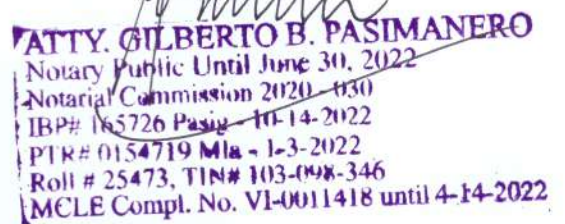 ATTY. GILBERTO B. PASIMANERO
Notary Public Until June 30, 2022
Notarial Commission 2020 - 030
IBP# 165726 Pasig - 10-14-2022
PTR# 0154719 Mla - 1-3-2022
Roll # 25473, TIN# 103-098-346
MCLE Compl. No. VI-0011418 until 4-14-2022